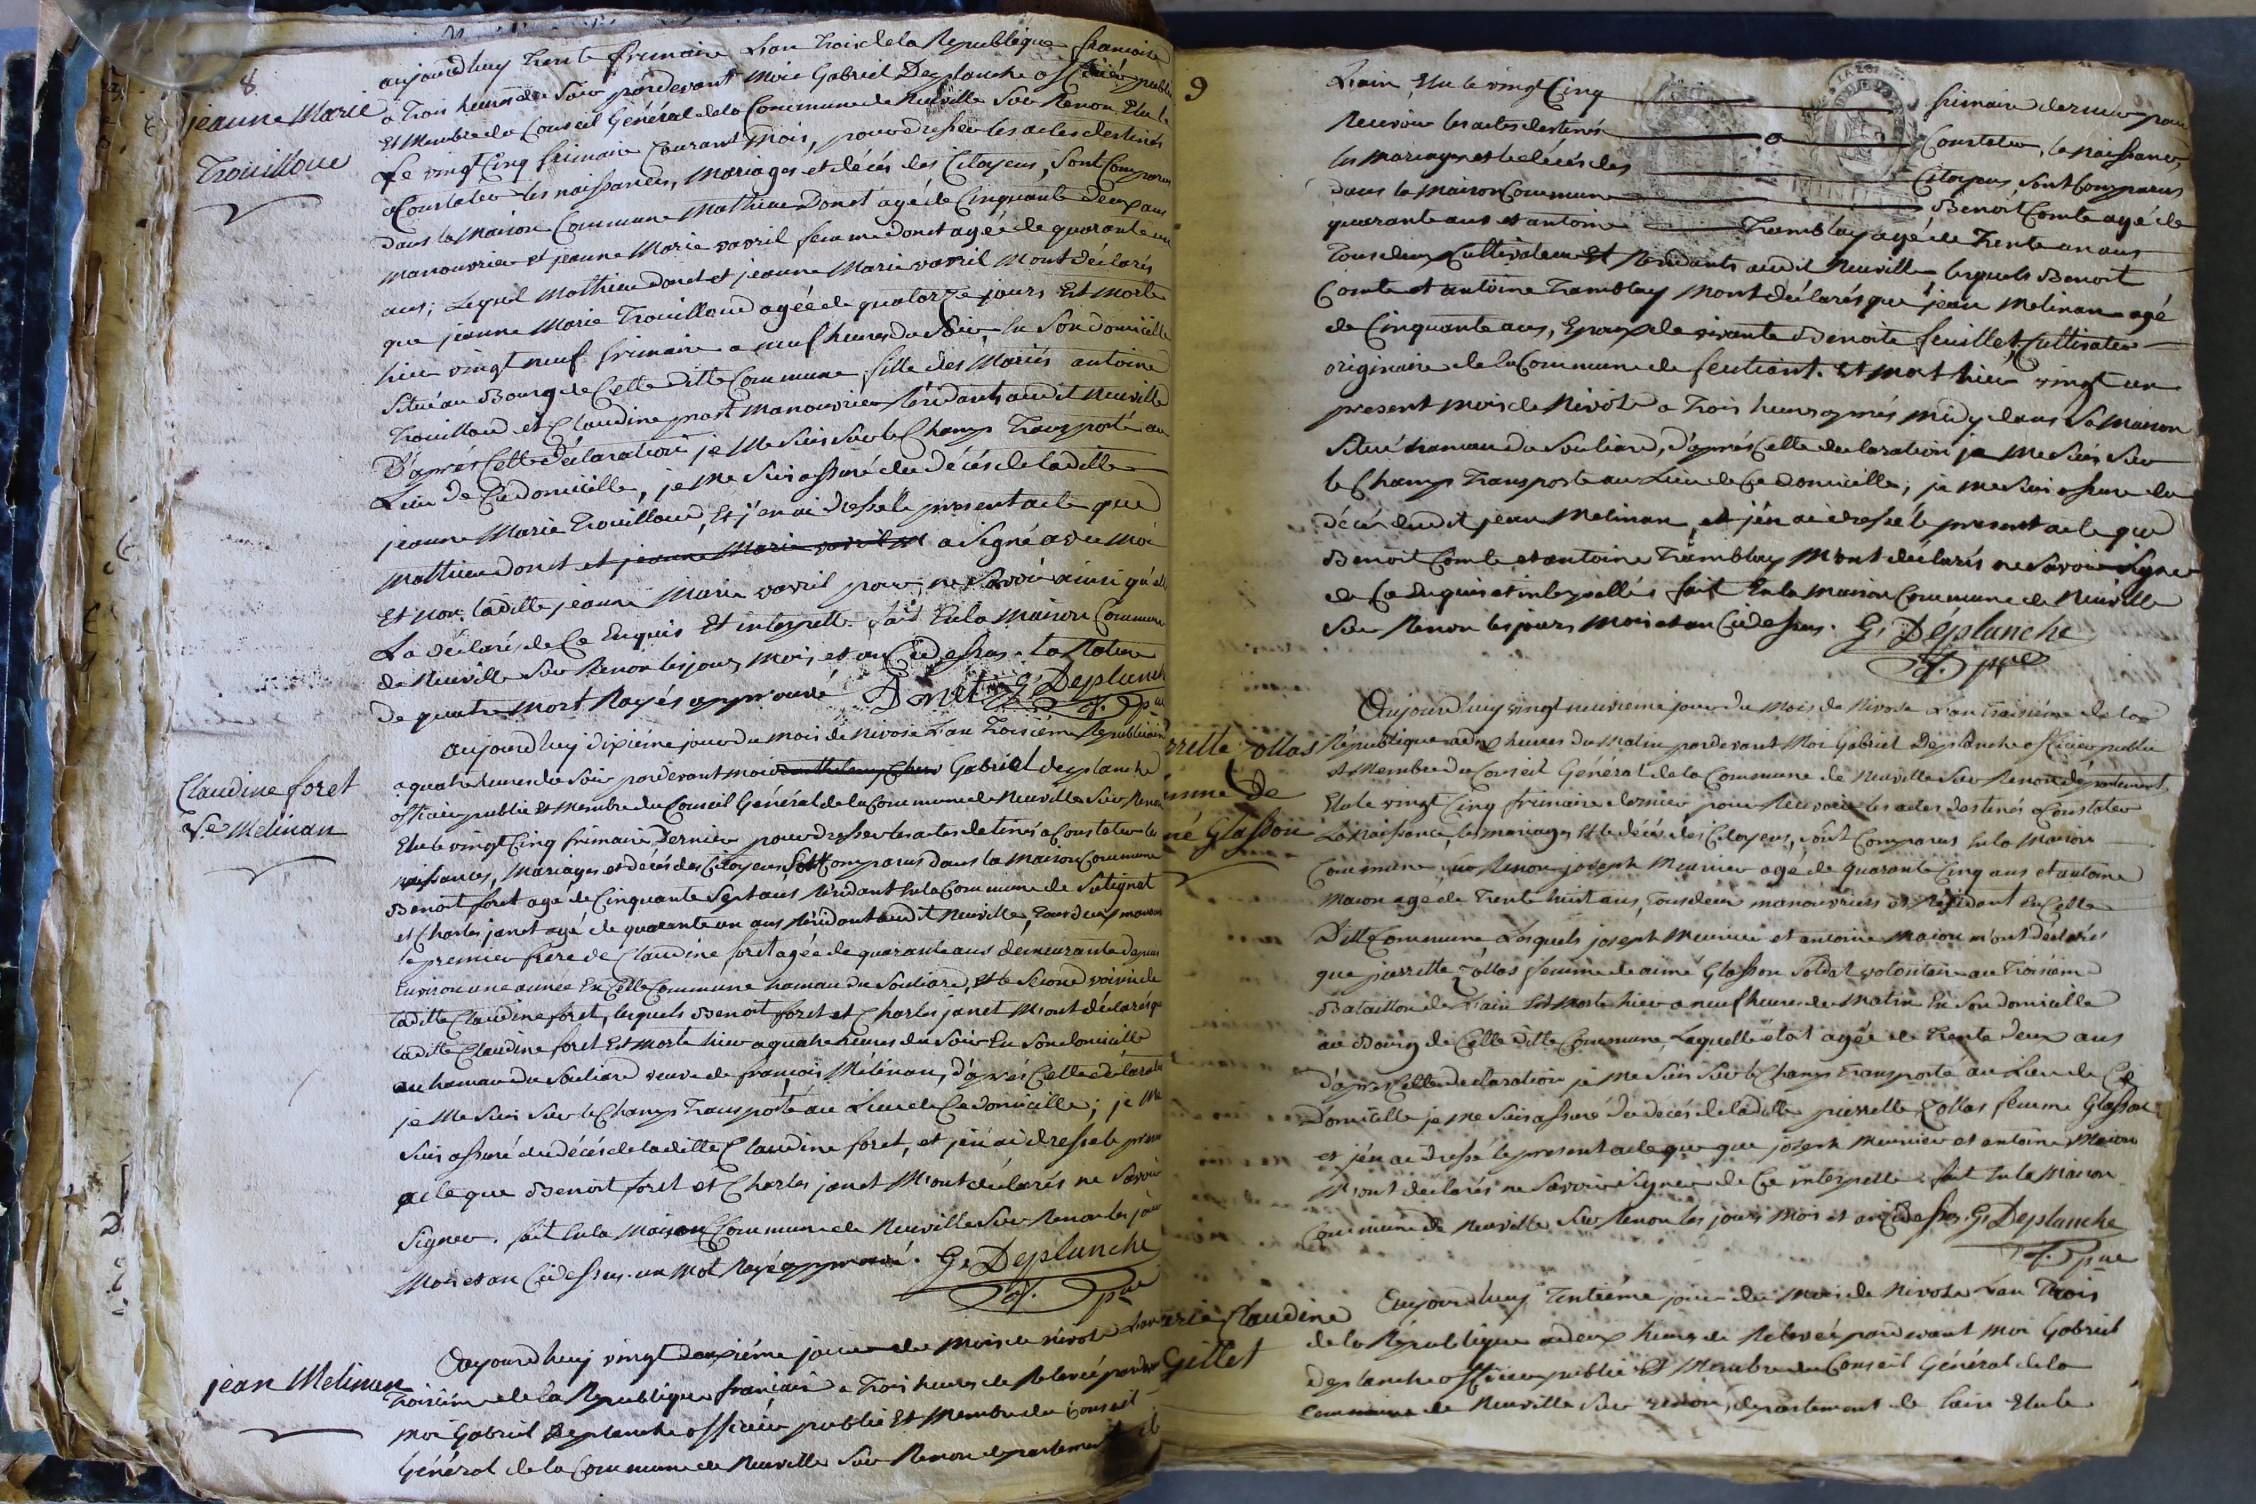 8
jeanne Marie
Trouilloux
aujourdhuy Trente frimaire L'an Trois de la Republique francaise
a Trois heures du Soir pardevant Moi Gabriel Deplanche officier public
Et Membre du Conseil Général de la Commune de Neuville Sur Renon Elu le
Le vingt Cinq frimaire Courant Mois, pour dresser les actes destinés
a Constater les naissances, Mariages et décés des Citoyens, Sont Comparus
dans la Maison Commune Mathieu Donet agé de Cinquante Deux ans
manouvrier et jeanne Marie vavril femme donet agée de quarante un
ans; Lequel Mathieu donet et jeanne Marie vavril M'ont déclarés
que jeanne Marie Trouilloud agée de quatorze jours Est Morte
hier vingt neuf frimaire a neuf heures du Soir, En Son domicille
Situé au Bourg de Cette ditte Commune, fille des Mariés antoine
Trouilloud et Claudine prost Manouvrier Résidants audit Neuville
D'aprés Cette déclaration je Me Suis Sur le Champ Transporté au
Lieu de Ce domicille, je Me Suis assuré du décés de laditte
jeanne Marie Trouilloud, Et j'en ai dressé le present acte que
Mathieu donet et jeanne Marie vavril M a Signé avec Moi
Et non laditte jeanne Marie vavril pour ne Savoir ainsi qu'elle
La déclaré de Ce Enquis Et interpellé. fait En la Maison Commune
de Neuville Sur Renon les jours, Mois et an Cidessus. La Rature
de quatre Mort Rayés approuvé Donet G. Deplanche
Claudine foret
Ve. Melinan
aujourdhuy dixiéme jour du Mois de Nivose L'an Troisiéme Republicain
a quatre heures du Soir pardevant moi Gabriel deplanche
officier public Et Membre du Conseil Général de la Commune de Neuville Sur Renon
Elu le vingt Cinq frimaire Dernier pour dresser les actes destinés a Constater les
naissances, Mariages et décés des Citoyens Sont Comparus dans la Maison Commune
Benoit foret agé de Cinquante Sept ans Résidant En la Commune de Sulignat
et Charles janet agé de quarante un ans Résidant audit Neuville, Tous deux manouv
le premier frere de Claudine foret agée de quarante ans demeurante depuis
Environ une année En Cette Commune hamau du Souliard, et le Second voisin de
laditte Claudine foret, lesquels Benoit foret et Charles janet M'ont déclarés que
laditte Claudine foret Est Morte hier a quatre heures du Soir En Son domicille
au hamau du Souliard veuve de françois Mélinan, d'aprés Cette déclaration
je Me Suis Sur le Champ Transporté au Lieu de Ce domicille; je Me
Suis assuré du décés de laditte Claudine foret, et j'en ai dressé le present
acte que Benoit foret et Charles janet M'ont déclarés ne Savoir
Signer. fait En la Maison Commune de Neuville Sur Renon les jour
Mois et an Cidessus. un Mot Rayé approuvé. G. Deplanche
jean Melinan
aujourdhuy vingt deuxiéme jour du Mois de Nivose L'an
Troisiéme de la République française a Trois heures de Relevée pardevant
Moi Gabriel Deplanche officier public Et Membre du Conseil
Général de la Commune de Neuville Sur Renon departement de
9
L'ain, Elu le vingt Cinq frimaire dernier pour
Recevoir les actes destinés a Constater, la Naissance,
les Mariages et le décés des Citoyens, Sont Comparus
dans la Maison Commune Benoit Comte agé de
quarante ans et antoine Tramblay agé de Trente un ans
Tous deux Cultivateurs Et Résidants audit Neuville lesquels Benoit
Comte et antoine Tramblay M'ont déclarés que jean Melinan agé
de Cinquante ans, Epoux de vivante Benoite feuillet, Cultivateur
originaire de la Commune de Est Mort hier vingt un
present Mois de Nivose a Trois heures aprés Midy dans Sa Maison
Situé hamau du Souliard, d'aprés Cette declaration je Me Suis Sur
le Champ Transporte au Lieu de Ce domicille, je Me Suis assuré du
décés dudit jean Melinan, et j'en ai dressé le present acte que
Benoit Comte et antoine Tramblay M'ont déclarés ne Savoir Signer
de Ce Enquis et interpellés fait En la Maison Commune de Neuville
Sur Renon les jours Mois et an Cidessus. G. Déplanche
rrette Collas
mme De
mé Glasson
Aujourd'huy vingt neuvieme jour du Mois de Nivose L'an Troisiéme de la
République a dix heures du Matin pardevant Moi Gabriel Deplanche officier public
et Membre du Conseil Général de la Commune de Neuville Sur Renon département
Elu le vingt Cinq frimaire dernier pour Recevoir les actes destinés a Constater
La Naissance, les Mariages Et le décés des Citoyens, Sont Comparus En la Maison
Commune Sur Renon joseph Meunier agé de quarante Cinq ans et antoine
Maron agé de Trente huit ans, Tous deux manouvriers et Résidant En Cette
Ditte Commune Lesquels joseph Meunier et antoine Maron m'ont déclarés
que pierrette Collas femme de aimé Glasson Soldat volontaire au Troisiem
Bataillon de L'ain Est Morte hier a neuf heures du Matin En Son domicille
au Bourg de Cette ditte Commune, Laquelle étoit agée de Trente deux ans
d'aprés Cette declaration je Me Suis Sur le Champ Transporté au Lieu de Ce
Domicille je Me Suis assuré du décés de laditte pierrette Collas femme Glasson
et j'en ai dressé le present acte que que joseph Meunier et antoine Maron
M'ont declarés ne Savoir Signer de Ce interpellé. fait En la Maison
Commune de Neuville Sur Renon les jours Mois et an Cidessus. G. Deplanche
arie Claudine
Gillet
Aujourdhuy Trentiéme jour du Mois de Nivose L'an Trois
de la République a deux heures de Relevée pardevant Moi Gabriel
deplanche officier public Et Membre du Conseil Général de la
Commune de Neuville Sur Renon, departement de Lain Elu le